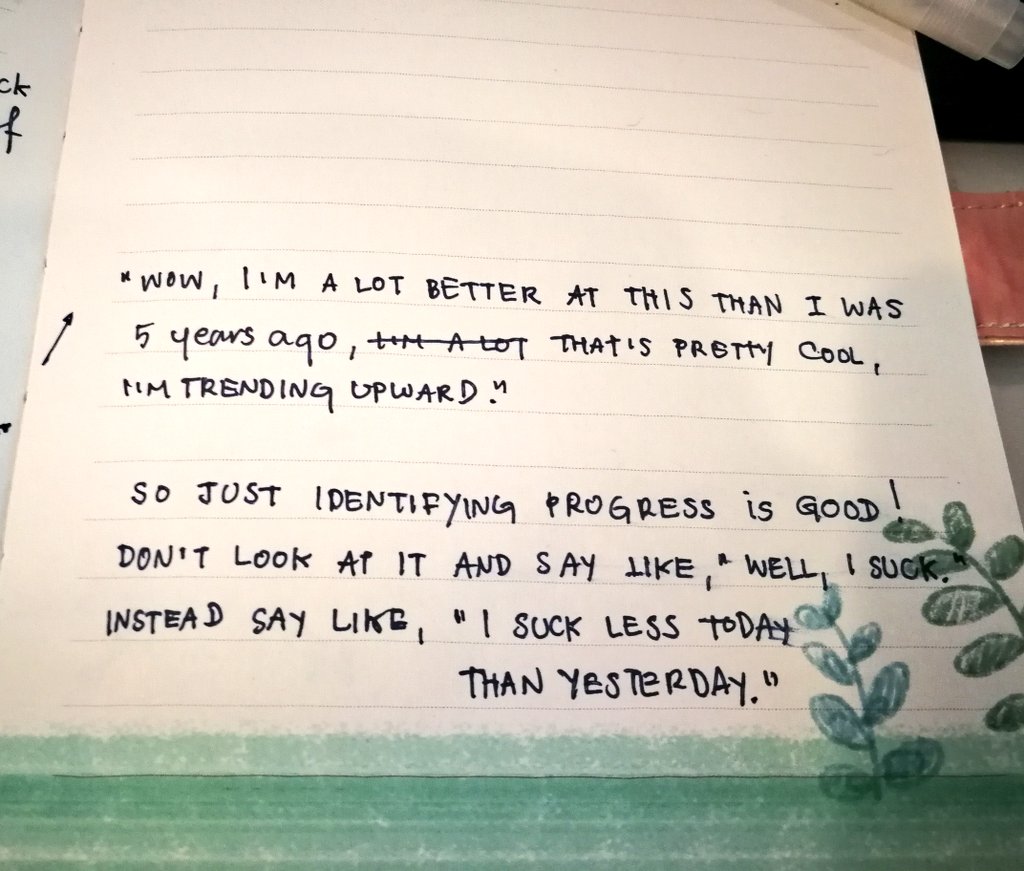 ck
f
"WOW, I'M A LOT BETTER AT THIS THAN I WAS
5 years ago, ~~I'M A LOT~~ THAT'S PRETTY COOL,
I'M TRENDING UPWARD."
SO JUST IDENTIFYING PROGRESS is GOOD!
DON'T LOOK AT IT AND SAY LIKE, "WELL, I SUCK."
INSTEAD SAY LIKE, "I SUCK LESS TODAY
THAN YESTERDAY."